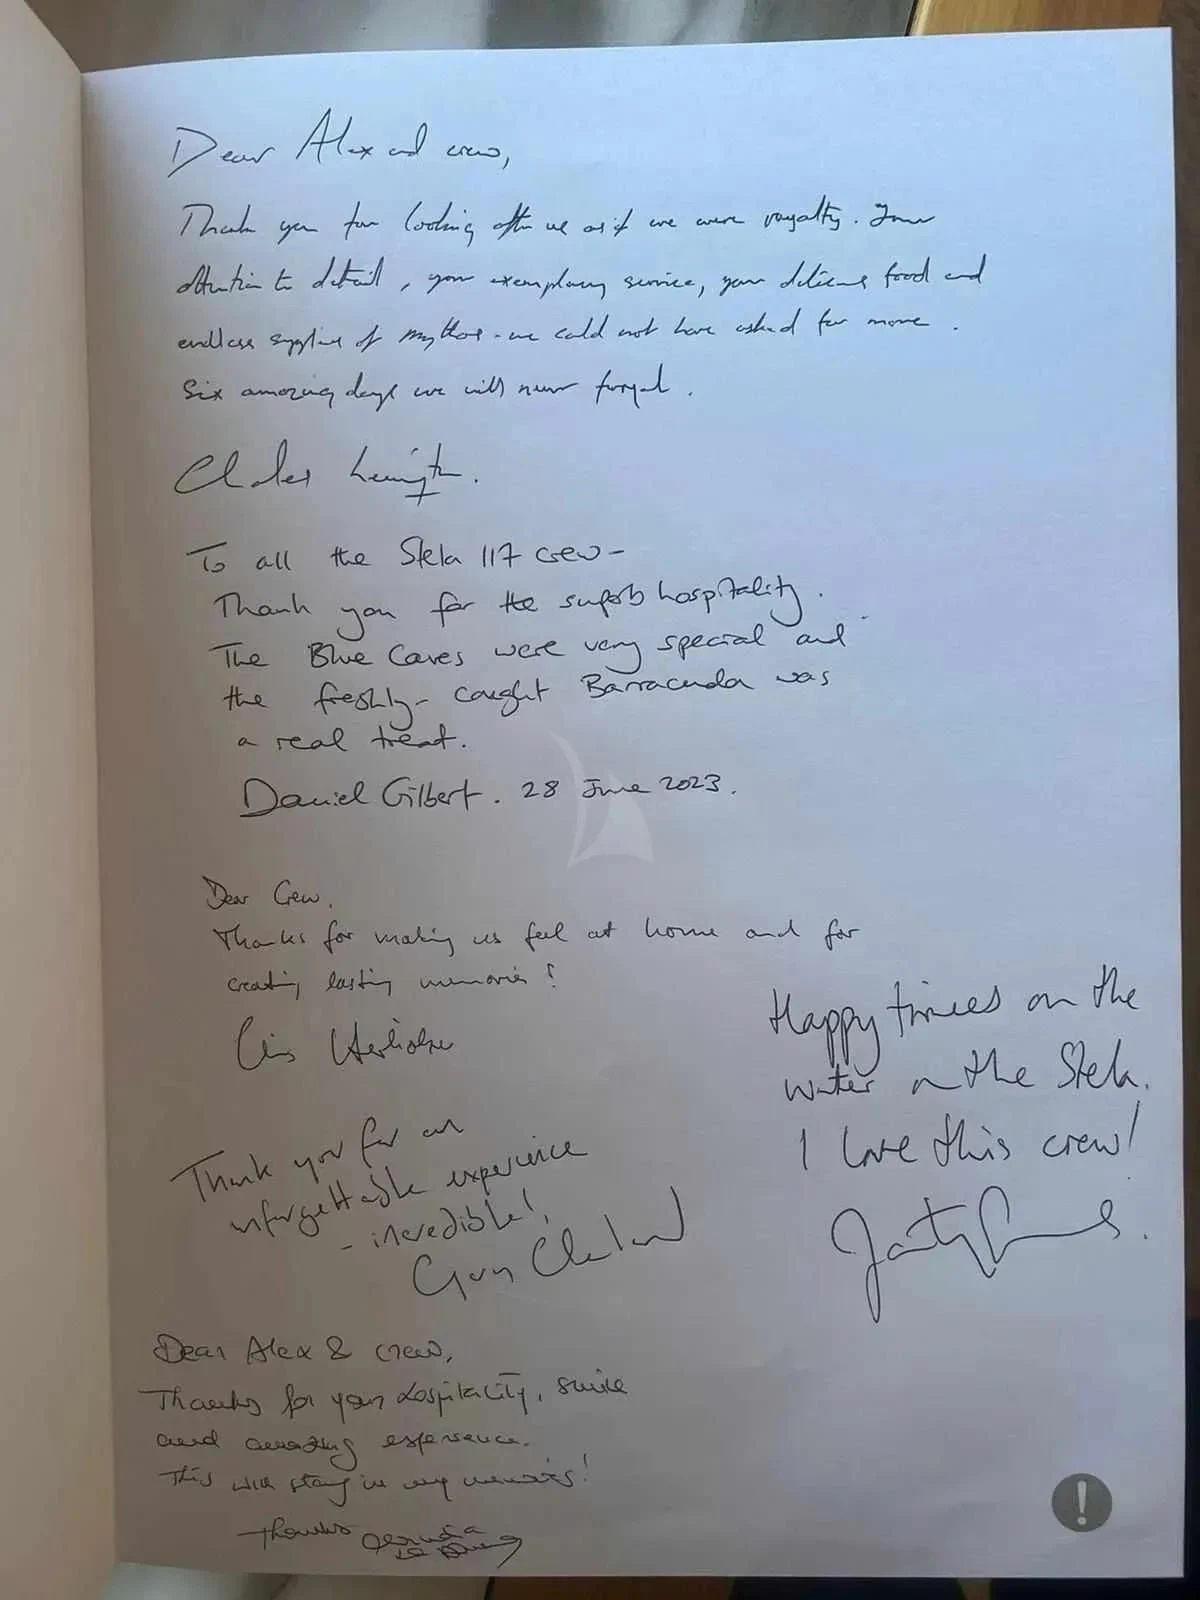 Dear Alex and crew,
Thank you for looking after us as if we were royalty. Your
attention to detail, your exemplary service, your delicious food and
endless supplies of mythos - we could not have asked for more.
Six amazing days we will never forget.
To all the Stela 117 crew-
Thank you for the superb hospitality.
The Blue Caves were very special and
the freshly-caught Barracuda was
a real treat.
Daniel Gilbert. 28 June 2023.
Dear Crew,
Thanks for making us feel at home and for
creating lasting memories!
Happy times on the
water on the Stela.
I love this crew!
Thank you for an
unforgettable experience
- incredible!
Dear Alex & crew,
Thanks for your hospitality, smile
and amazing experience.
This will stay in my memories!
Thanks